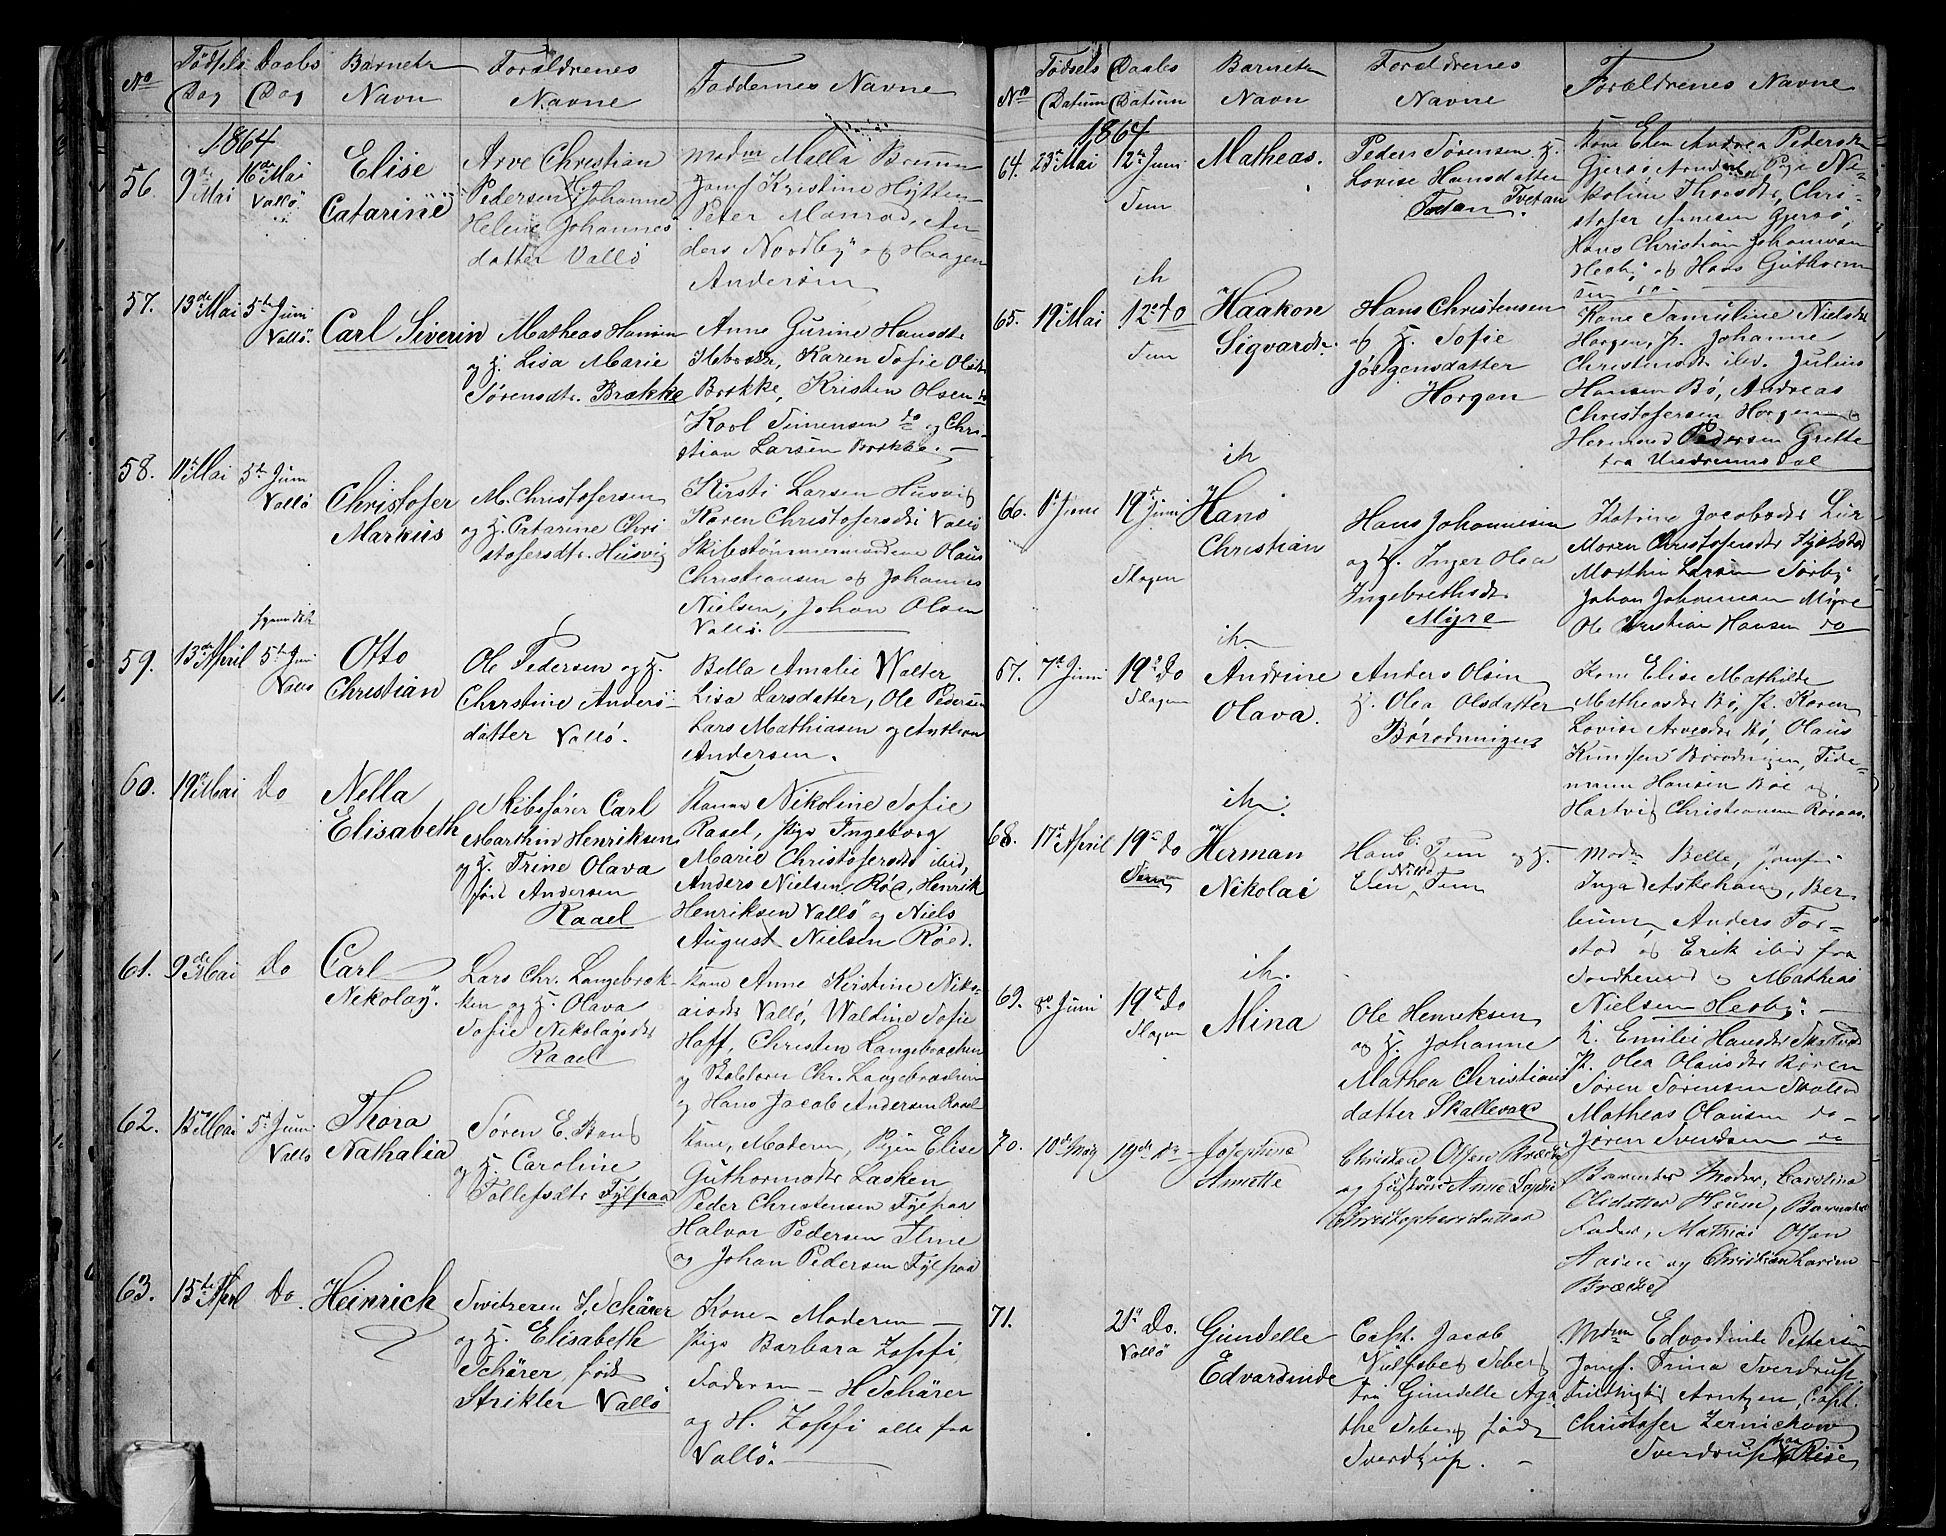 No
Fødsels Dag
Daabs Dag
Barnets Navn
Forældrenes Navne
Faddernes Navne
1864
56.
9de Mai
16de Mai
Vallö
Elise
Catarine
Arve Christian
Pedersen H. Johanne
Helene Johannes
datter Vallö
Madm Malla
Jomf Kristine Hytten
Peter Monrad, An
ders Nordby og Haagen
Andersen
57.
13de Mai
5te Juni
Vallö.
Carl Siverin
Matheas Hansen
og H. Lisa Marie
Sørensdtr. Brække
Anne Gurine Hansdtr
Karen Sofie Olsdtr
Brække, Kristen Olsen do
Karl Simensen do og Chri-
stian Larsen Brekke.
58.
11te Mai
5te Juni
Vallö
Christofer
Markus
M. Christofersen
og H. Catarine Chri
stofersdtr. Husvig
Kirsti Larsen Husvig
Karen Christofersdtr Vallö
Skibstømmermændene Olaus
Christiansen og Johannes
Nielsen, Johan Olsen
Vallö.
59.
13de April
5te Juni
Vallö
Otto
Christian
Ole Pedersen og H.
Christine Anders-
datter Vallö.
Bella Amalie Walter
Lisa Larsdatter, Ole Pedersen
Lars Mathiasen og Anthon
Andersen.
60.
19de Mai
Do
Nella
Elisabeth
Skibsfører Carl
Marthin Henriksen
og H. Trine Olava
født Andersen
Raael
Konen Nikoline Sofie
Rasel, Pige Ingeborg
Marie Christofersdtr ibid,
Anders Nielsen Röa, Henrik
Henriksen Vallö og Niels
August Nielsen Röed.
61.
9de Mai
Do
Carl
Nekolay.
Lars Chr. Langebrek-
ken og H. Olava
Sofie Nikolaysdtr
Raael
Kone Anne Kirstine Niko-
laisdtr Vallö, Waldine Sofie
Hoff, Christen Langebrechen
og Chr. Langebrechen
og Hans Jacob Andersen Raael
62.
15de Mai
5te Juni
Vallö
Thora
Nathalia
Søren E. Bans
og H. Caroline
Tollefsdtr Fylpaa
Kone, Moderen, Pigen Elise
Guthormsdtr Lasken
Peder Christensen Fylpaa
Halvor Pedersen
og Johan Pedersen Fylpaa
63.
15de April
Do
Heinrich
Switseren J. Schärer
og H. Elisabeth
Schärer, født
Strikler Vallö
Kone - Moderen -
Pige Barbara Zoffi
Faderen - H Schärer
og H. Zoffi alle fra
Vallö.
No
Fødsels Datum
Daabs Datum
Barnets Navn
Forældrenes Navne
Forældrenes Navne
1864
64.
23de Mai
12te Juni
Sem
Matheas.
Peder Sørensen H.
Lovise Hansdatter
Tveten
Kone Elen Andrea Pedersdtr
Gjersö Pige Ni-
koline Chri-
stofer Arnesen Gjersö,
Hans Christian Johannsen
Hesby, og Hans Guthorm
sen do
65.
19de Mai
12te do
Sem
ih
Haakon
Sigvardt.
Hans Christensen
og H. Sofie
Jørgensdatter
Horgen
Kone Samuline Nielsdtr
Horgen, P. Johanne
Christensdtr ibid. Julius
Hansen Bö, Andreas
Christofersen Horgen og
Hermund Pedersen Grette
fra Undrumsdal
66.
1ste Juni
19de Juni
Slagen
ih
Hans
Christian
Hans Johannesen
og H. Inger Olea
Ingebrethsdtr
Myre
Katrine Jacobsdtr
Maren Christofersdtr
Marthin Larsen Sørby
Johan Johannesen Myre
Ole Christian Hansen do
67.
7de Juni
19de do
Slagen
ih.
Andrine
Olava.
Anders Olsen
H. Olea Olsdatter
Kone Elise Mathilde
Matheasdtr Bö, P. Karen
Lovise Arvesdtr Bö, Olaus
Knudsen Tide-
mann Hansen Böe og
Hartvig Christiansen
68.
17de April
19de do
Sem
ih.
Herman
Nikolai
Hans C. Sem og H.
Elen Sem
Madm Belle, Jomf
Inga Askehaug, Ber
bum, Anders For-
stad og Erik ibid fra
og Mathias
Nielsen Hesby.
69.
8de Juni
19de do
Slagen
ih.
Mina
Ole Henriksen
og H. Johanne
Mathea Christians
datter Skallevold
K. Emilie Hansdtr Skallevold
P. Olea Olausdtr
Søren Sørensen
Matheas Olausen do
Søren Svendsen do
70.
10de Maj
19de do
Josephine
Annette
Christen Olsen Brække
og Hustrue Anne Sophie
Christophersdatter
Barnets Moder, Carolina
Olsdatter Heum, Barnets
Fader, Mathias Olsen
Aasen og Christian Larsen
Brække
71.
21de do.
Vallö
Gundelle
Edvardinde
Capt. Jacob
Sebe
Fru Gundelle Aga
the født
Sverdrup.
Mdm Edvardinde Pettersen
Jomf. Trina Sverdrup
Arntzen, Capt.
Christofer Zernichow
Sverdrup